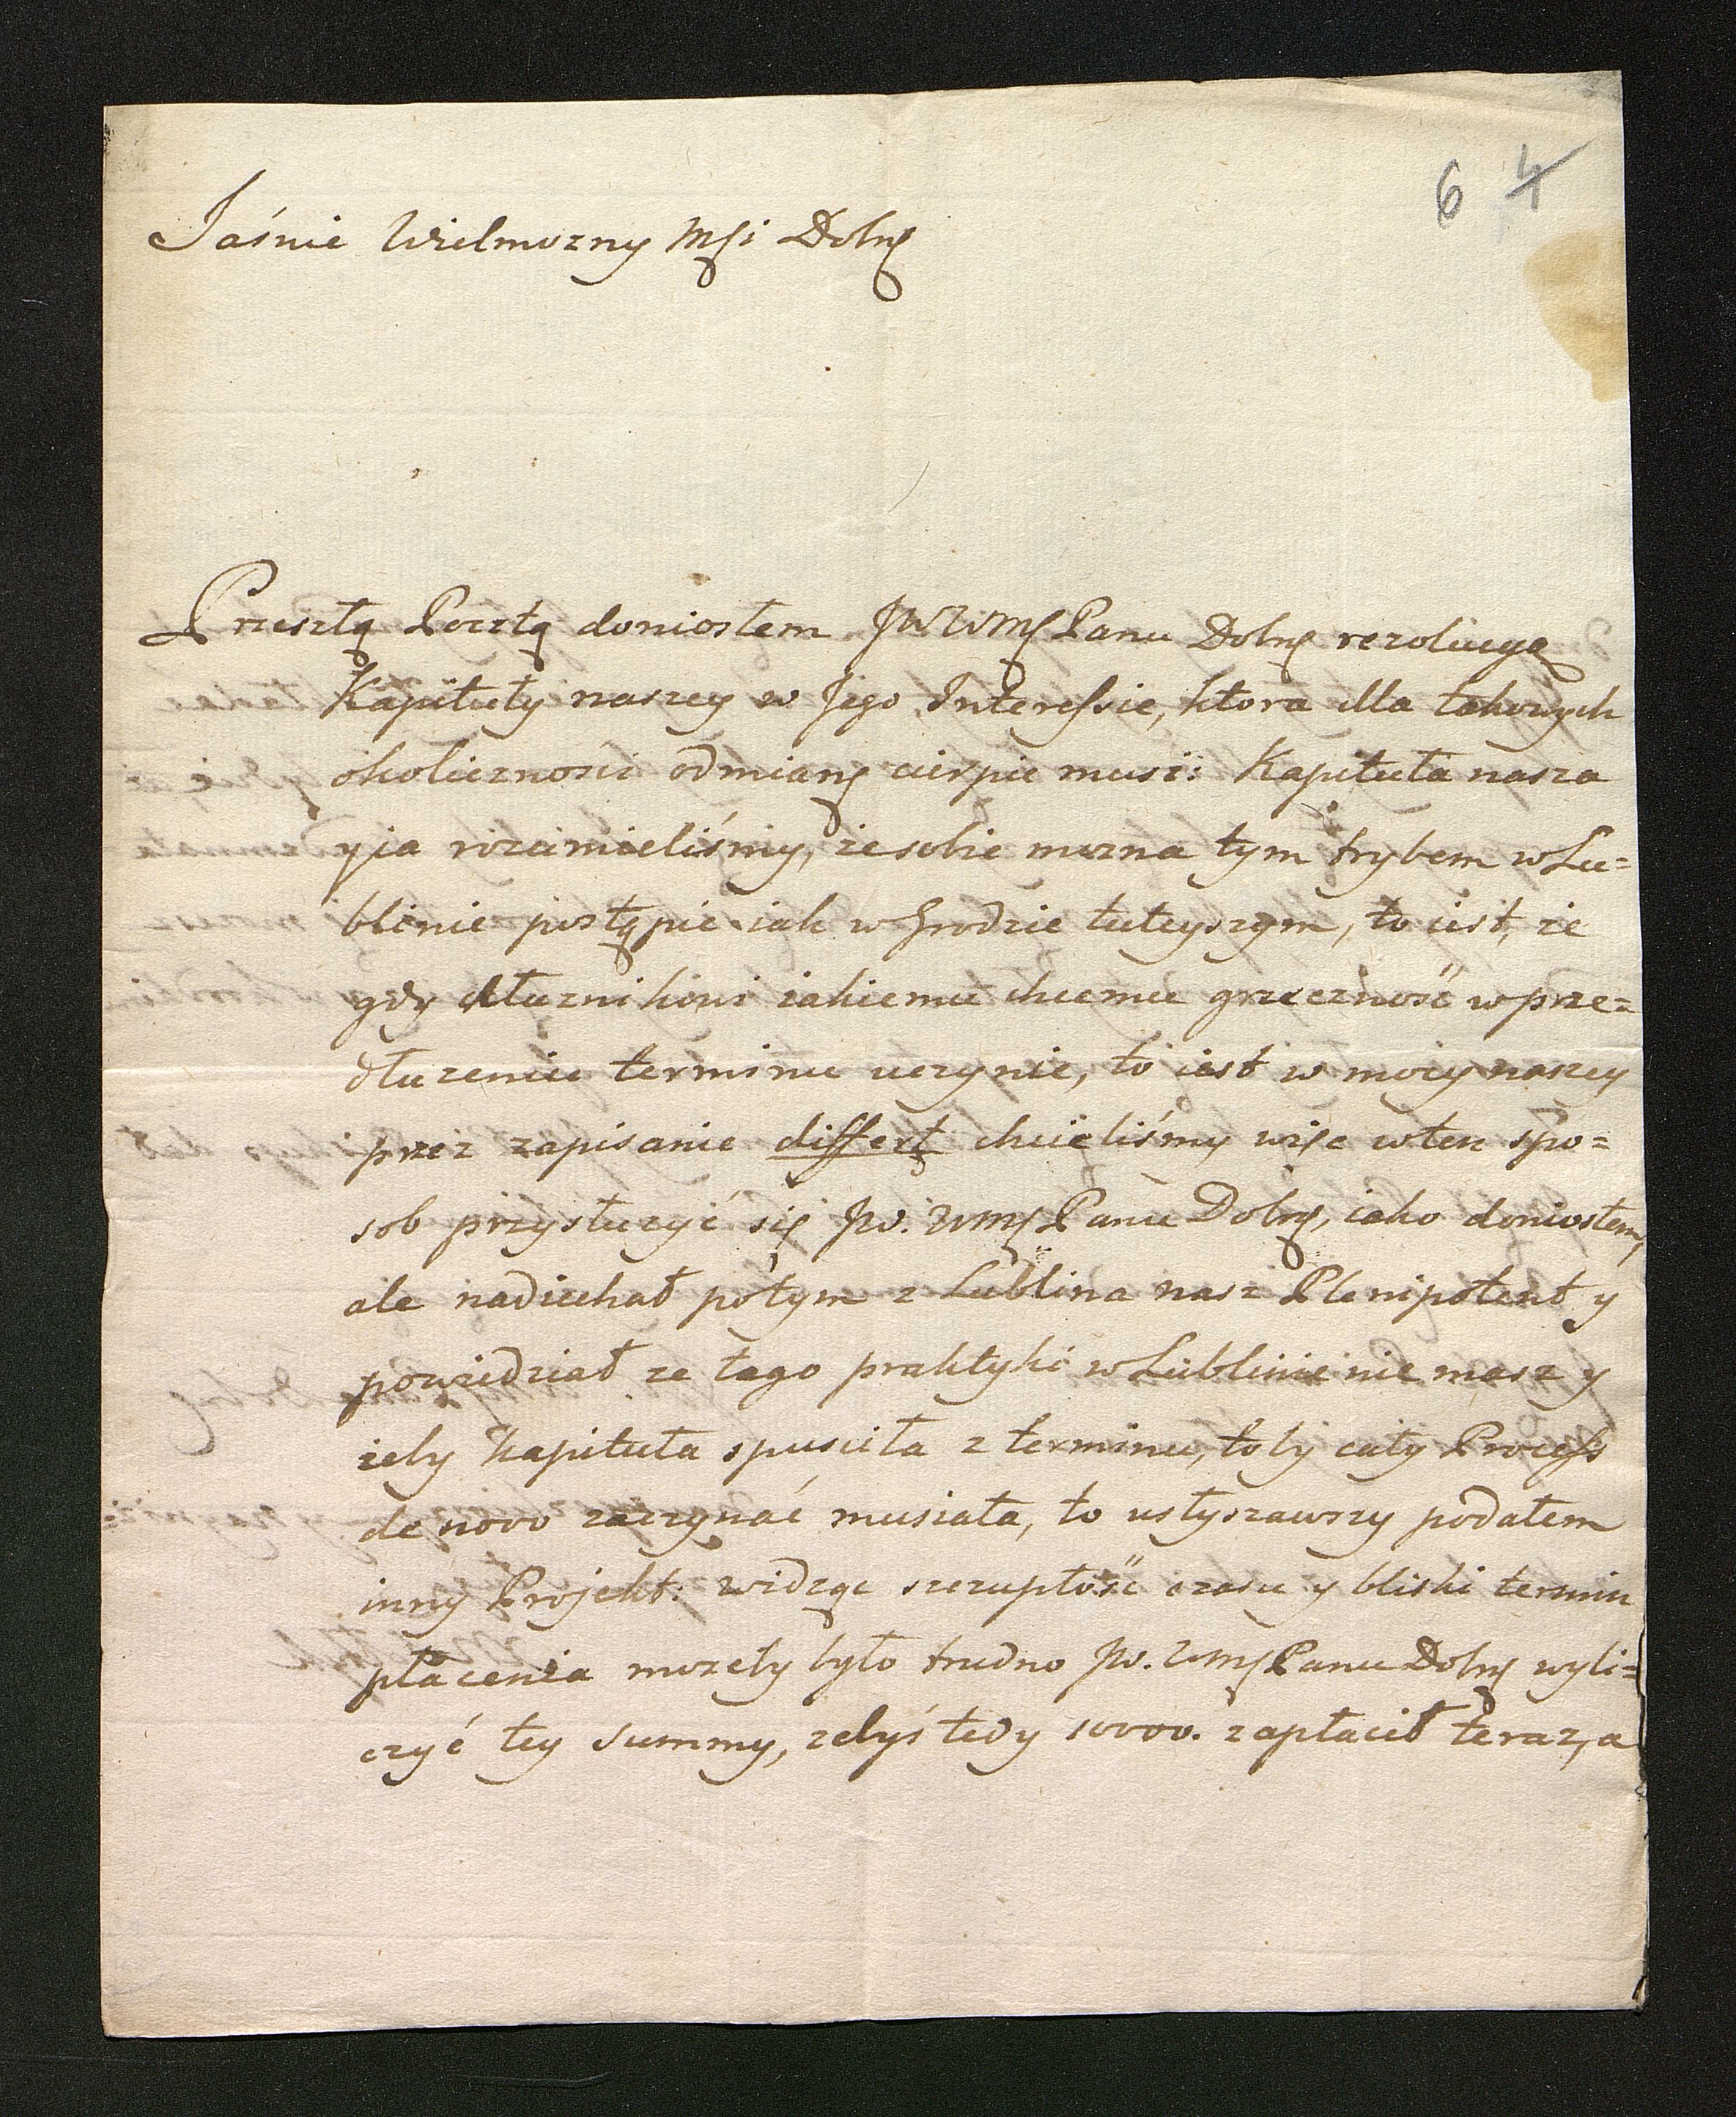 6 4
Jaśnie Wielmozny Mśi Dobrę
Przeszłą Pocztą doniosłem JWWMę Panu Dobrę rezolucyę
Kapituły naszey w Jego Interessie, ktora dla takowych
okolicznosci odmianę cierpie musi: Kapituła nasza
y ia rozumieliśmy, ze sobie mozna tym trybem w Lu=
blinie postąpic iak w Grodzie tuteyszym, to iest, ze
gdy dłuznikowi iakiemu chcemy grzecznosc w prze=
dłuzeniu terminu uczynic, to iest w mocy naszey
przez zapisanie differt chcieliśmy więc w ten spo=
sob przysłuzyć się JW. WMę Panu Dobrę, iako doniosłem,
ale nadiechał potym z Lublina nasz Plenipotent y
powiedział ze tago praktyki w Lublinie nie masz y
zeby Kapituła spusciła z terminu, toby cały Process
de novo zaczynać musiała, to usłyszawszy podałem
inny Projekt: widząc szczupłosc czasu y bliski termin
płacenia mozeby było trudno JW. WMę Panu Dobrę wyli=
czyć tey Summy, zebyś tedy 10000. zapłacił teraz, a